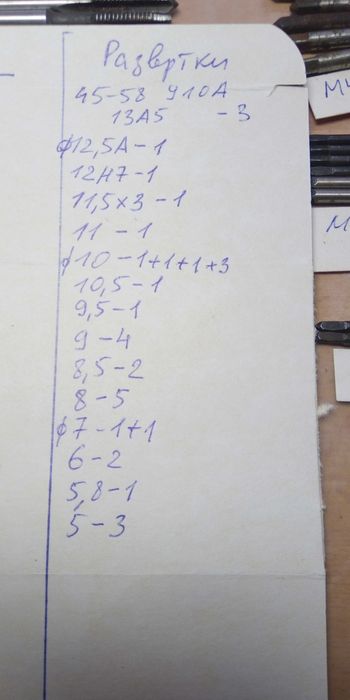 Развртки
45-58 910А
13А5 - 3
ϕ12,5А - 1
12Н7 - 1
11,5х3 - 1
11 - 1
ϕ10 - 1+1+1+3
10,5 - 1
9,5 - 1
9 - 4
8,5 - 2
8 - 5
ϕ7 - 1+1
6 - 2
5,8 - 1
5 - 3
М4